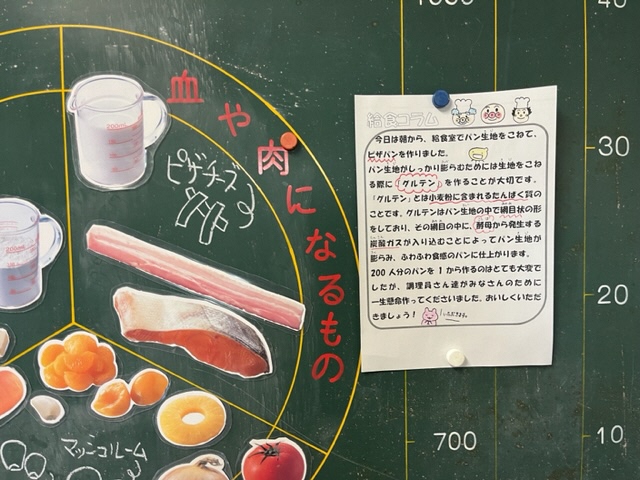 血や肉になるもの
ピザチーズ
マッシュルーム
給食コラム
今日は朝から、給食室でパン生地をこねて、
ピザパンを作りました。
パン生地がしっかり膨らむためには生地をこね
る際に「グルテン」を作ることが大切です。
「グルテン」とは小麦粉に含まれるたんぱく質の
ことです。グルテンはパン生地の中で網目状の形
をしており、その網目の中に、酵母から発生する
炭酸ガスが入り込むことによってパン生地が
膨らみ、ふわふわ食感のパンに仕上がります。
200人分のパンを1から作るのはとても大変で
したが、調理員さん達がみなさんのために
一生懸命作ってくださいました。おいしくいただ
きましょう！
いただきます。
1000
40
30
20
10
700
200ml